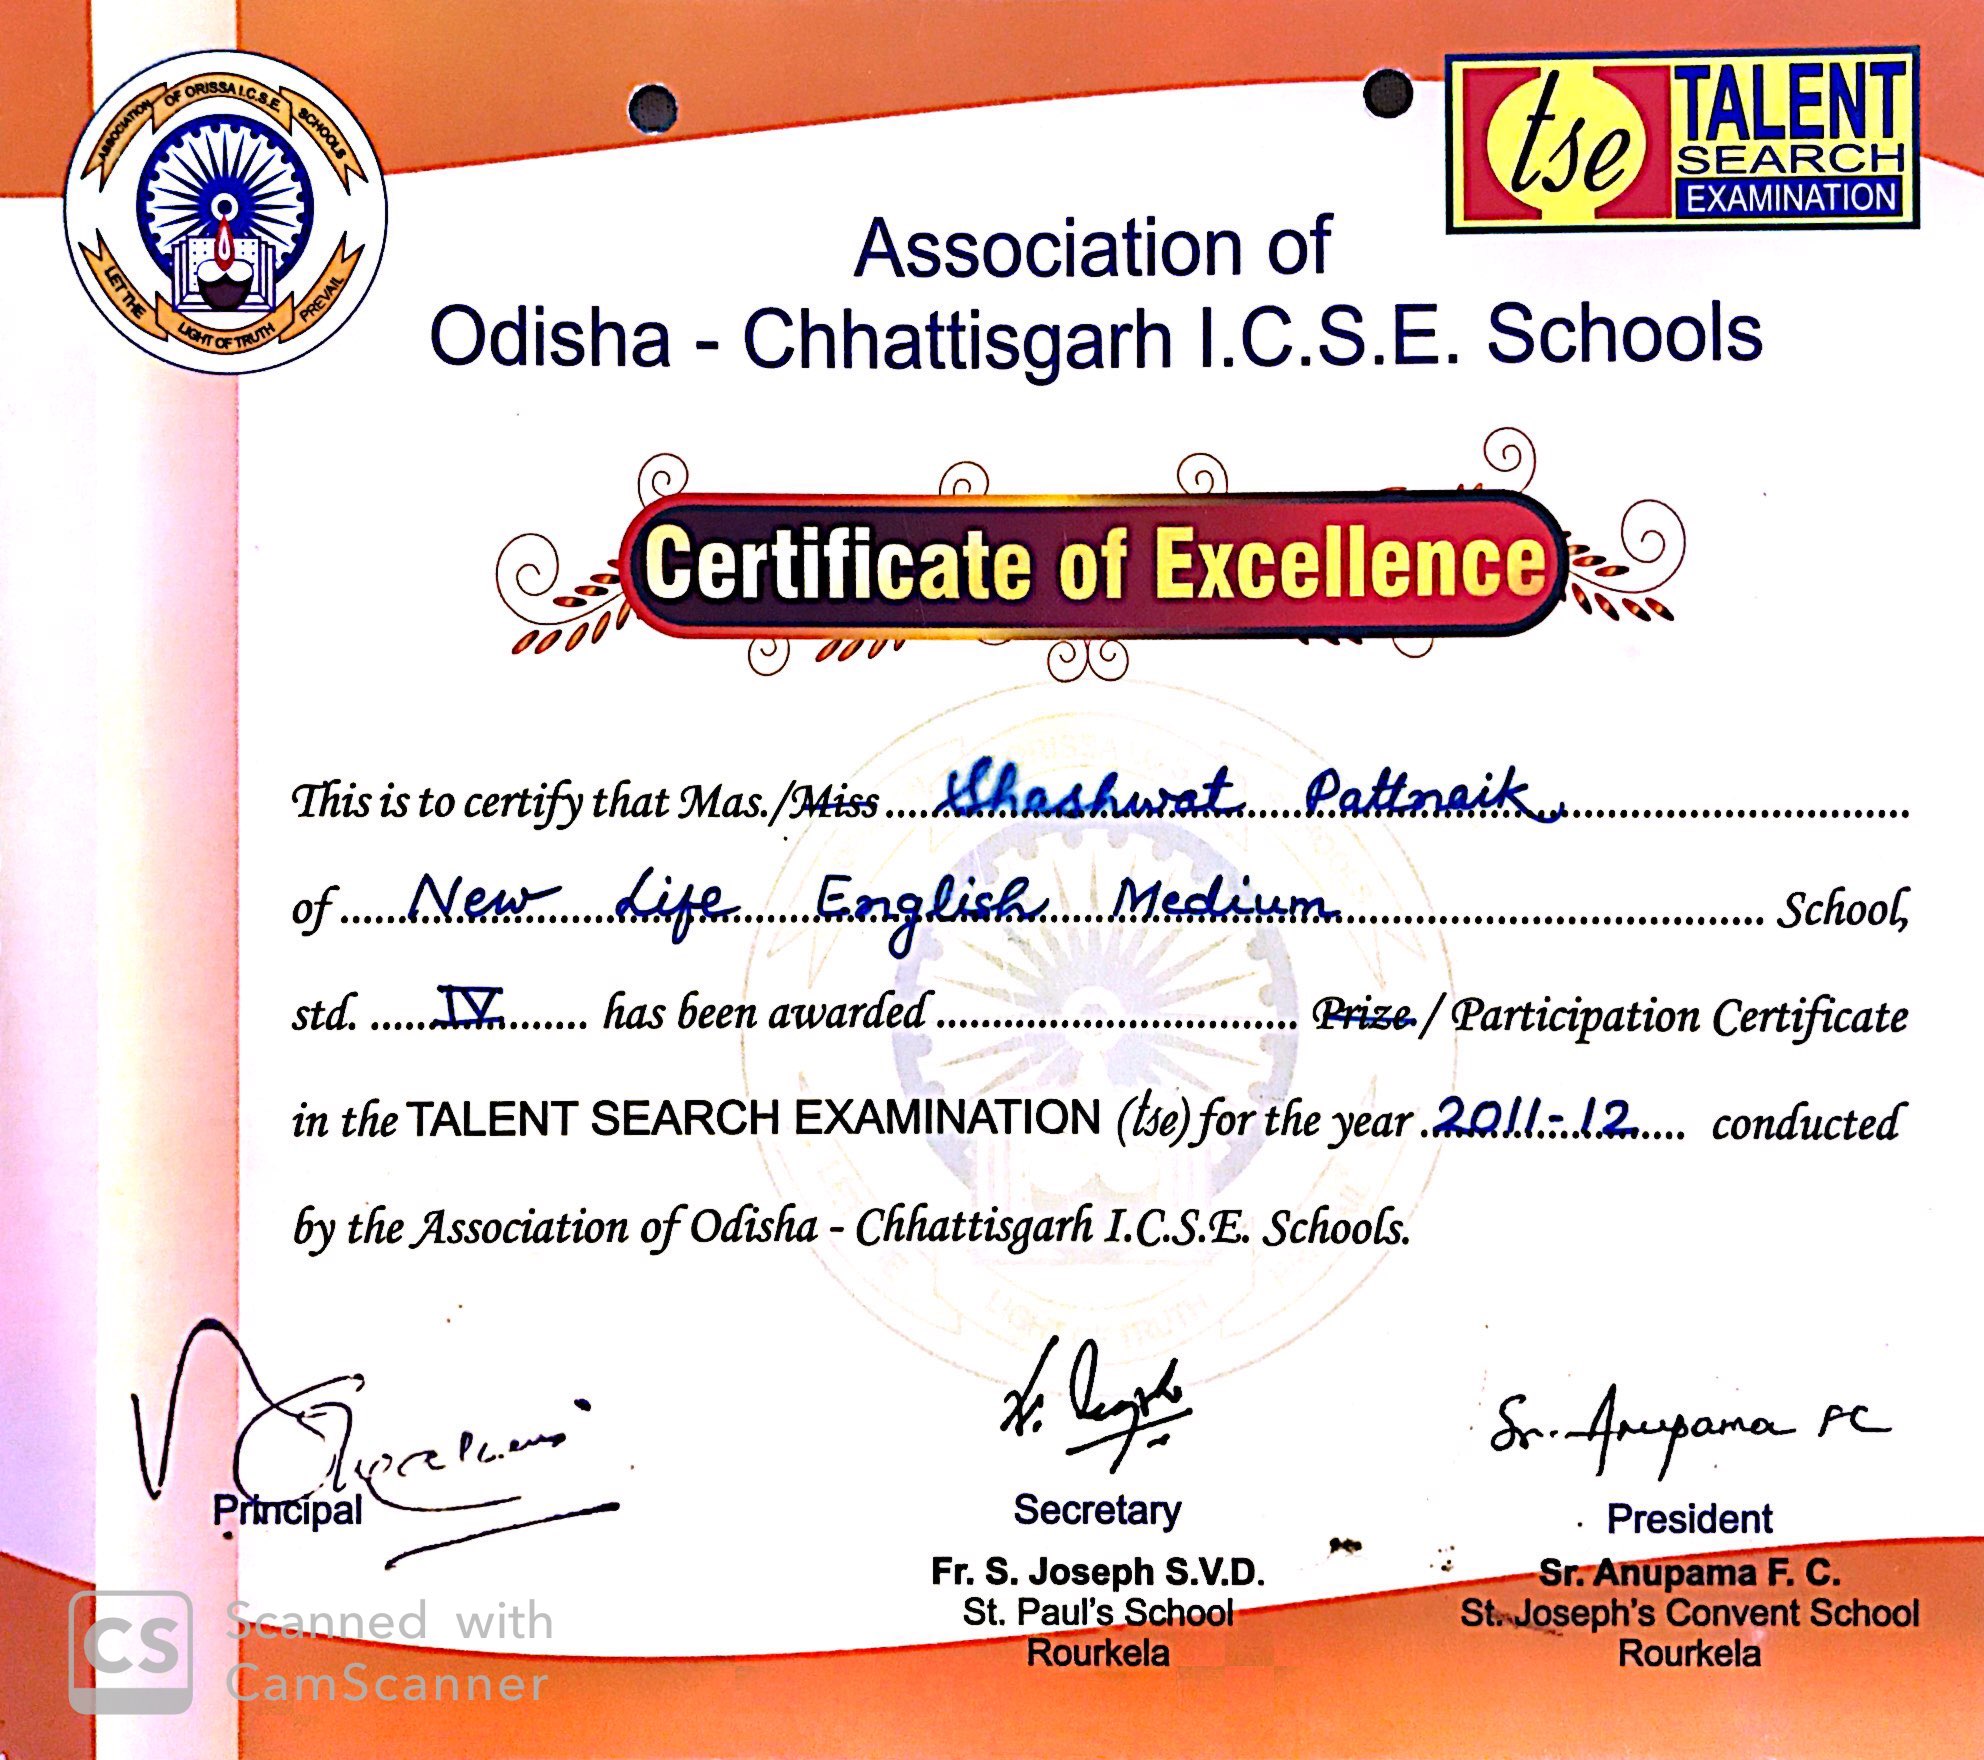 ASSOCIATION OF ORISSA I.C.S.E. SCHOOLS
LET THE LIGHT OF TRUTH PREVAIL
tse TALENT
SEARCH
EXAMINATION
Association of
Odisha - Chhattisgarh I.C.S.E. Schools
Certificate of Excellence
This is to certify that Mas./Miss Shashwat Pattnaik
of New Life English Medium School,
std. IV has been awarded Prize / Participation Certificate
in the TALENT SEARCH EXAMINATION (tse) for the year 2011-12 conducted
by the Association of Odisha - Chhattisgarh I.C.S.E. Schools.
Sr. Anupama FC
Principal Secretary President
Fr. S. Joseph S.V.D. Sr. Anupama F. C.
St. Paul's School St. Joseph's Convent School
Rourkela Rourkela
CS Scanned with
CamScanner